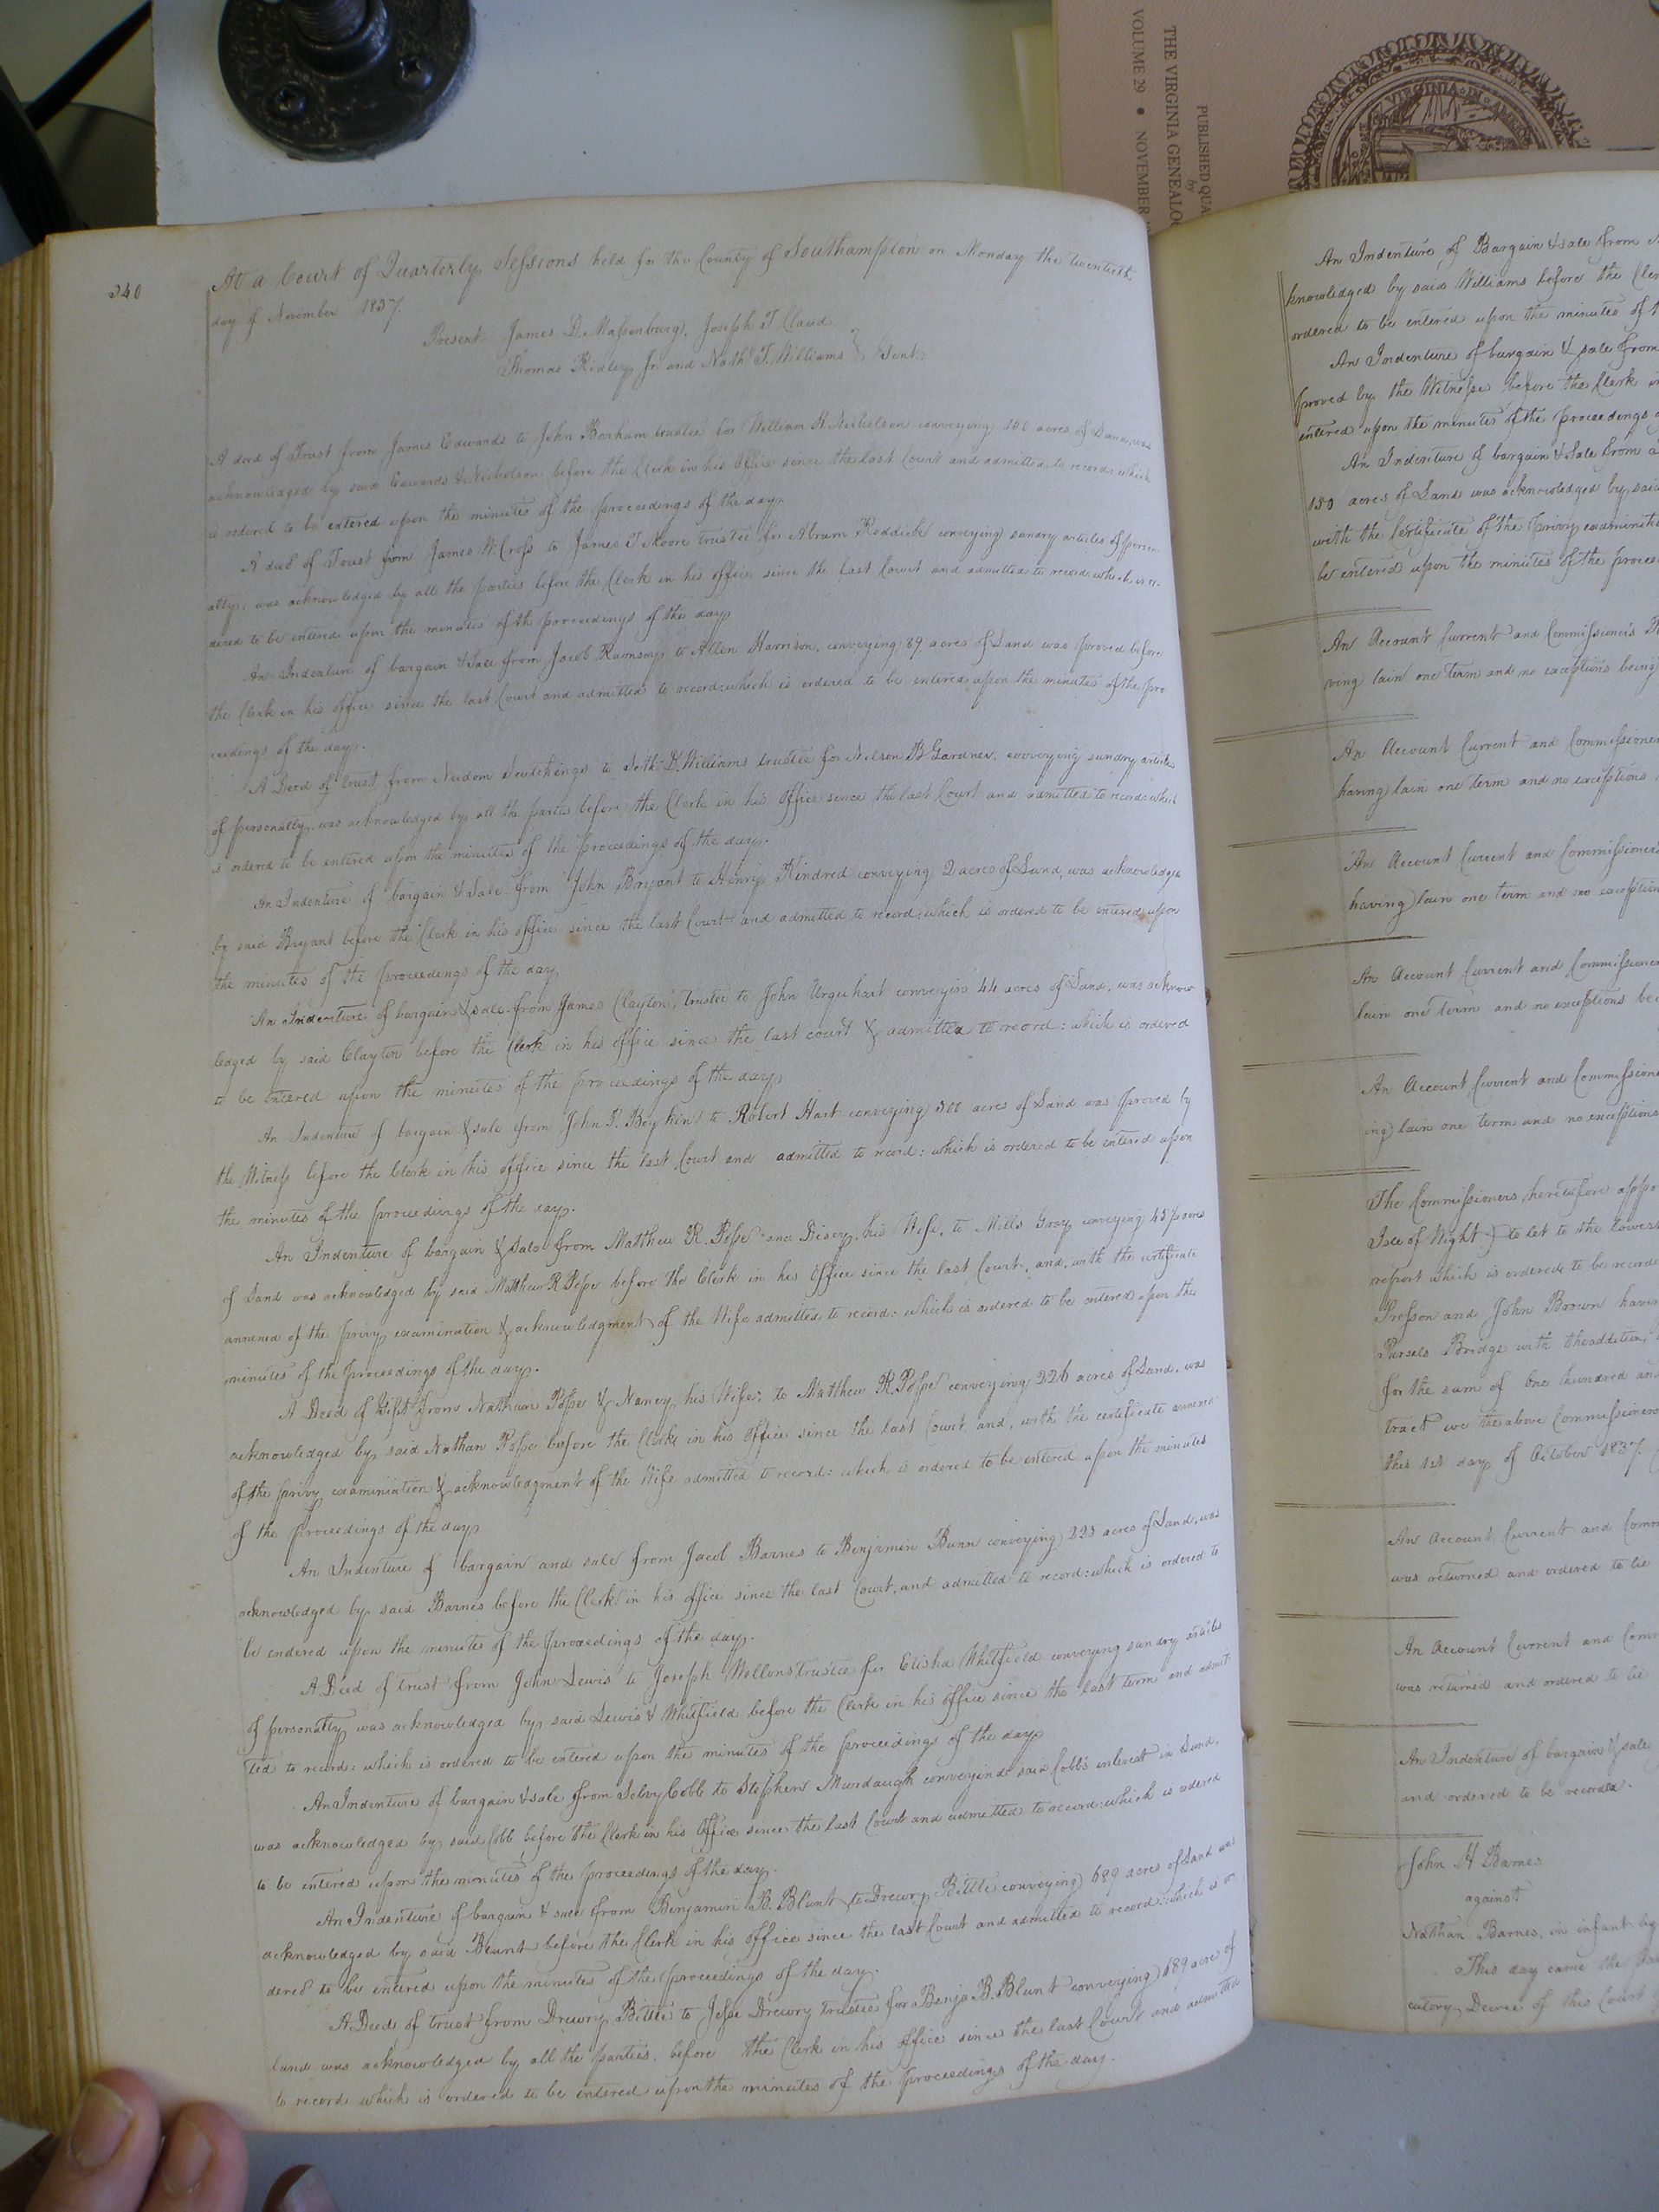 VOLUME 29 • NOVEMBER
THE VIRGINIA GENEALO
PUBLISHED QUA
by
VIRGINIA IN AMER
240
At a Court of Quarterly Sessions held for the County of Southampton on Monday the twentieth
day of November 1837.
Present James D. Massenburg, Joseph T. Claud
Thomas Ridley Jr. and Nath. T. Williams } Gent.
A deed of Trust from James Edwards to John Barham trustee for William H Nicholson conveying 150 acres of Land, was
acknowledged by said Edwards & Nicholson before the Clerk in his Office since the last Court and admitted to record: which
is ordered to be entered upon the minutes of the proceedings of the day.
A deed of Trust from James W. Cross to James T Moore trustee for Abram Reddick conveying sundry articles of person-
alty, was acknowledged by all the parties before the Clerk in his office since the last Court and admitted to record: which is or-
dered to be entered upon the minutes of the proceedings of the day
An Indenture of bargain & Sale from Jacob Ramsay to Allen Harrison, conveying 89 acres of Land was proved before
the Clerk in his office since the last Court and admitted to record: which is ordered to be entered upon the minutes of the pro
ceedings of the day.
A Deed of trust from Needom to Seth Williams trustee for Nelson B Gardner, conveying sundry articles
of personalty, was acknowledged by all the parties before the Clerk in his Office since the last Court and admitted to record: which
is ordered to be entered upon the minutes of the proceedings of the day.
An Indenture of bargain & Sale from John Bryant to Henry Kindred conveying 2 acres of Land, was acknowledged
by said Bryant before the Clerk in his office since the last Court and admitted to record; which is ordered to be entered upon
the minutes of the proceedings of the day
An Indenture of bargain & sale from James Clayton, trustee to John Urquhart conveying 44 acres of Land, was acknow
ledged by said Clayton before the Clerk in his office since the last court & admitted to record: which is ordered
to be entered upon the minutes of the proceedings of the day
An Indenture of bargain & sale from John Boykin to Robert Hart conveying 300 acres of Land was proved by
the Witness before the Clerk in his office since the last Court and admitted to record: which is ordered to be entered upon
the minutes of the proceedings of the day.
An Indenture of bargain & Sale from Matthew R. Pope and Disey, his Wife, to Mills Gray conveying 45
of Land was acknowledged by said Matthew R Pope before the Clerk in his Office since the last Court, and, with the certificate
annexed of the privy examination & acknowledgment of the Wife admitted to record: which is ordered to be entered upon the
minutes of the proceedings of the day.
A Deed of Gift from Nathan Pope & Nancy, his Wife, to Matthew R. Pope conveying 226 acres of Land, was
acknowledged by said Nathan Pope before the Clerk in his Office since the last Court, and, with the certificate annexed
of the privy examination & acknowledgment of the Wife admitted to record: which is ordered to be entered upon the minutes
of the proceedings of the day
An Indenture of bargain and sale from Jacob Barnes to Benjamin Bunn conveying 223 acres of Land, was
acknowledged by said Barnes before the Clerk in his office since the last Court, and admitted to record: which is ordered to
be endered upon the minutes of the proceedings of the day.
A Deed of trust from John Lewis to Joseph Wellons trustee for Elisha Whitfield conveying sundry articles
of personalty was acknowledged by said Lewis & Whitfield before the Clerk in his office since the last term and admit-
ted to record: which is ordered to be entered upon the minutes of the proceedings of the day
An Indenture of bargain & sale from Selvy Cobb to Stephen Murdaugh conveying said Cobb's interest in Land,
was acknowledged by said Cobb before the Clerk in his Office since the last Court and admitted to record: which is ordered
to be entered upon the minutes of the proceedings of the day.
An Indenture of bargain & sale from Benjamin B. Blunt to Drewry Bittle conveying 689 acres of Land was
acknowledged by said Blunt before the Clerk in his office since the last Court and admitted to record: which is or
dered to be entered upon the minutes of the proceedings of the day.
A Deed of trust from Drewry Bittle to Jesse Drewry trustee for Benja B. Blunt conveying 689 acre of
land was acknowledged by all the parties, before the Clerk in his office since the last Court and admitted
to record which is ordered to be entered upon the minutes of the proceedings of the day.
An Indenture of Bargain & sale from
knowledged by said Williams before the Cler
ordered to be entered upon the minutes of t
An Indenture of bargain & sale from
proved by the Witnesses before the Clerk in
entered upon the minutes of the proceedings
An Indenture of bargain & Sale from
150 acres of Land was acknowledged by said
with the Certificate of the privy examinati
be entered upon the minutes of the proce
An Account Current and Commissioner's R
ving lain one term and no exceptions being
An Account Current and Commissioner
having lain one term and no exceptions
An Account Current and Commissioner
having lain one term and no exception
An Account Current and Commissioner
lain one term and no exceptions be
An Account Current and Commission
ing lain one term and no exceptions
The Commissioners heretofore appo
Isle of Wight) to let to the lowest
report which is ordered to be recorde
Presson and John Brown havin
Pursels Bridge with the addition,
for the sum of One hundred an
tract we the above Commissioners
this 1st day of October 1837.
An Account Current and Comm
was returned and ordered to lie
An Account Current and Com
was returned and ordered to lie
An Indenture of bargain & sale
and ordered to be recorded.
John H Barnes
against
Nathan Barnes, an infant by
This day came the
cutory Decree of this Court